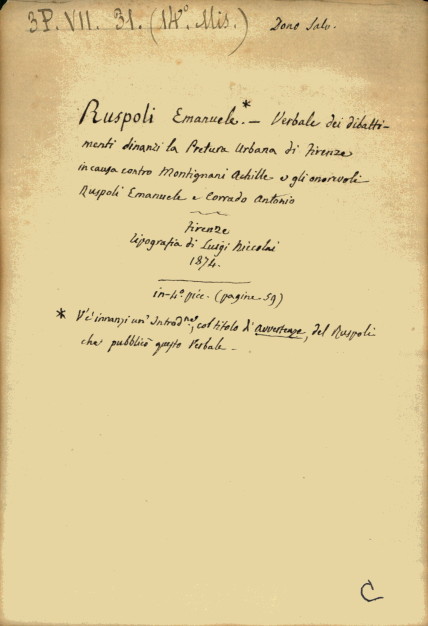 3P. VII. 31. (14º Mis.) Dono Salv.
Ruspoli Emanuele.* — Verbale dei dibatti-
menti dinanzi la Pretura Urbana di Firenze
in causa contro Montignani Achille e gli onorevoli
Ruspoli Emanuele e Corrado Antonio
Firenze
Tipografia di Luigi Niccolai
1874.
in-4º picc. (pagine 59)
* V'è innanzi un' Introd.ne, col titolo di Avvertenze, del Ruspoli
che pubblicò questo Verbale. —
C